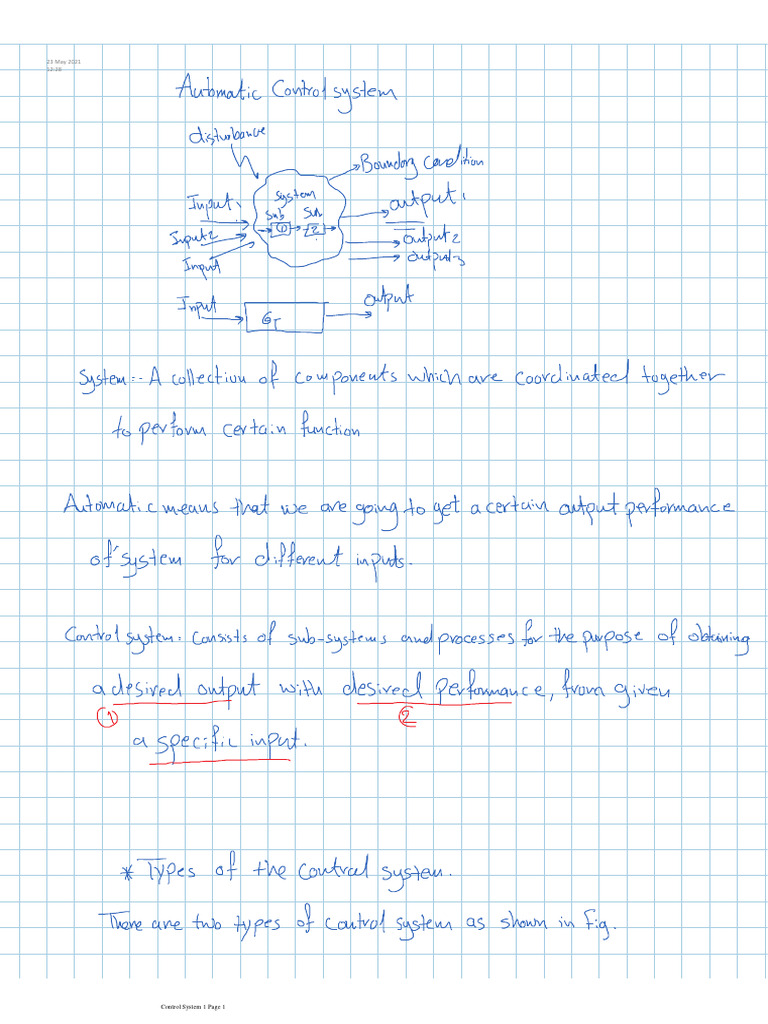 23 May 2021
12:28
Automatic Control system
disturbance
Boundary condition
system
Input1
output1
Sub
Sub
1
2
Input2
output2
Input
output3
Input
output
G
System:- A collection of components which are coordinated together
to perform certain function
Automatic means that we are going to get a certain output performance
of system for different inputs.
Control system: Consists of sub-systems and processes for the purpose of obtaining
a desired output with desired performance, from given
1
2
a specific input.
* Types of the control system.
There are two types of control system as shown in Fig.
Control System 1 Page 1